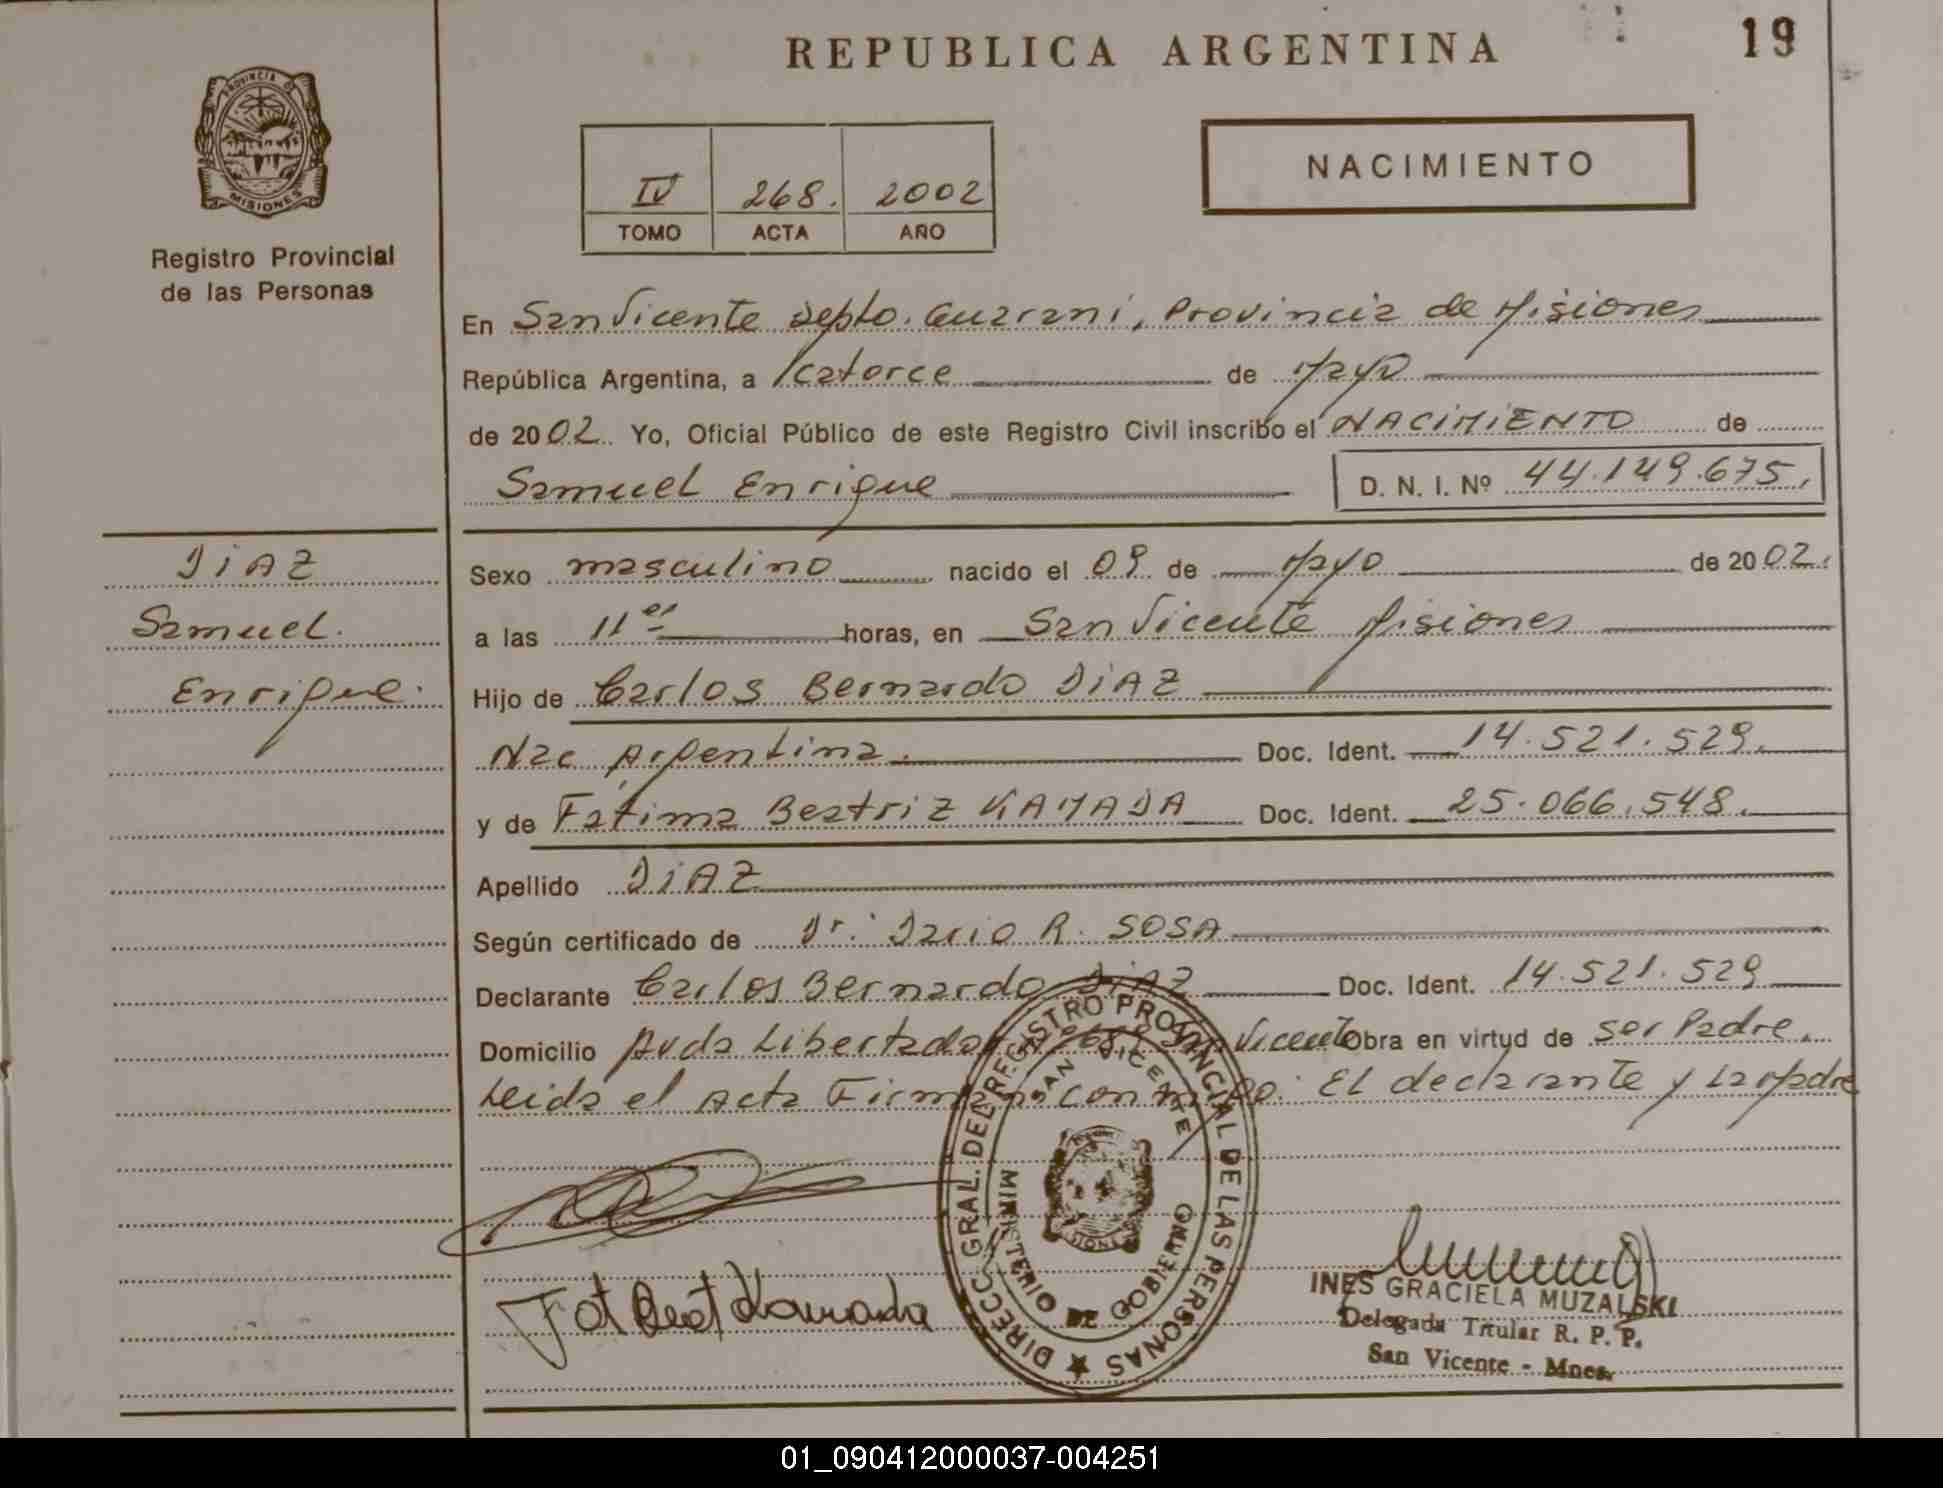 REPUBLICA ARGENTINA
19
PROVINCIA DE
MISIONES
Registro Provincial
de las Personas
IV 268. 2002
TOMO ACTA AÑO
NACIMIENTO
En San Vicente Depto. Guarani, Provincia de Misiones
República Argentina, a catorce de Mayo
de 2002. Yo, Oficial Público de este Registro Civil inscribo el NACIMIENTO de
Samuel Enrique D. N. I. Nº 44.149.675.
DIAZ
Samuel.
Enrique.
Sexo masculino nacido el 09 de Mayo de 2002.
a las 11 es horas, en San Vicente Misiones
Hijo de Carlos Bernardo DIAZ
Nac Argentina. Doc. Ident. 14.521.529.
y de Fátima Beatriz KAMADA Doc. Ident. 25.066.548.
Apellido DIAZ
Según certificado de Dr. Dario R. SOSA
Declarante Carlos Bernardo DIAZ Doc. Ident. 14.521.529
Domicilio Avda Libertador Vicente Obra en virtud de ser Padre.
Leida el Acta Firman con migo: El declarante y la madre
DIRECC. GRAL. DEL REGISTRO PROVINCIAL DE LAS PERSONAS
SAN VICENTE
MINISTERIO DE GOBIERNO
MISIONES
Fat Beat Kamada
INES GRACIELA MUZALSKI
Delegada Titular R. P. P.
San Vicente - Mnes.
01_090412000037-004251